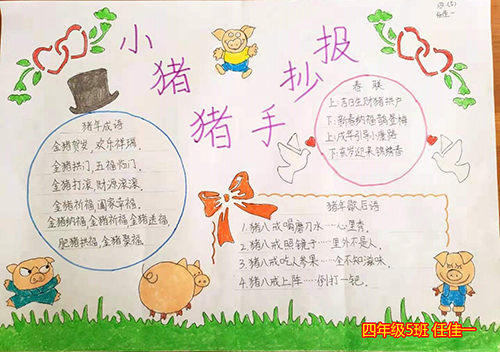 四.(5)
任佳一
小猪猪手抄报
猪年成语
金猪贺岁,欢乐祥瑞.
金猪拱门,五福临门.
金猪打滚,财源滚滚.
金猪祈福,阖家幸福.
金猪纳福,金猪祈福,金猪送福.
肥猪拱福,金猪聚福.
春联
上:吉日生财猪拱户
下:新春纳福鹊登梅
上:戌年引导小康路
下:亥岁迎来锦绣春
猪年歇后语
1.猪八戒喝磨刀水……心里秀.
2.猪八戒照镜子……里外不是人.
3.猪八戒吃人参果……全不知滋味.
4.猪八戒上阵……倒打一钯.
四年级5班 任佳一